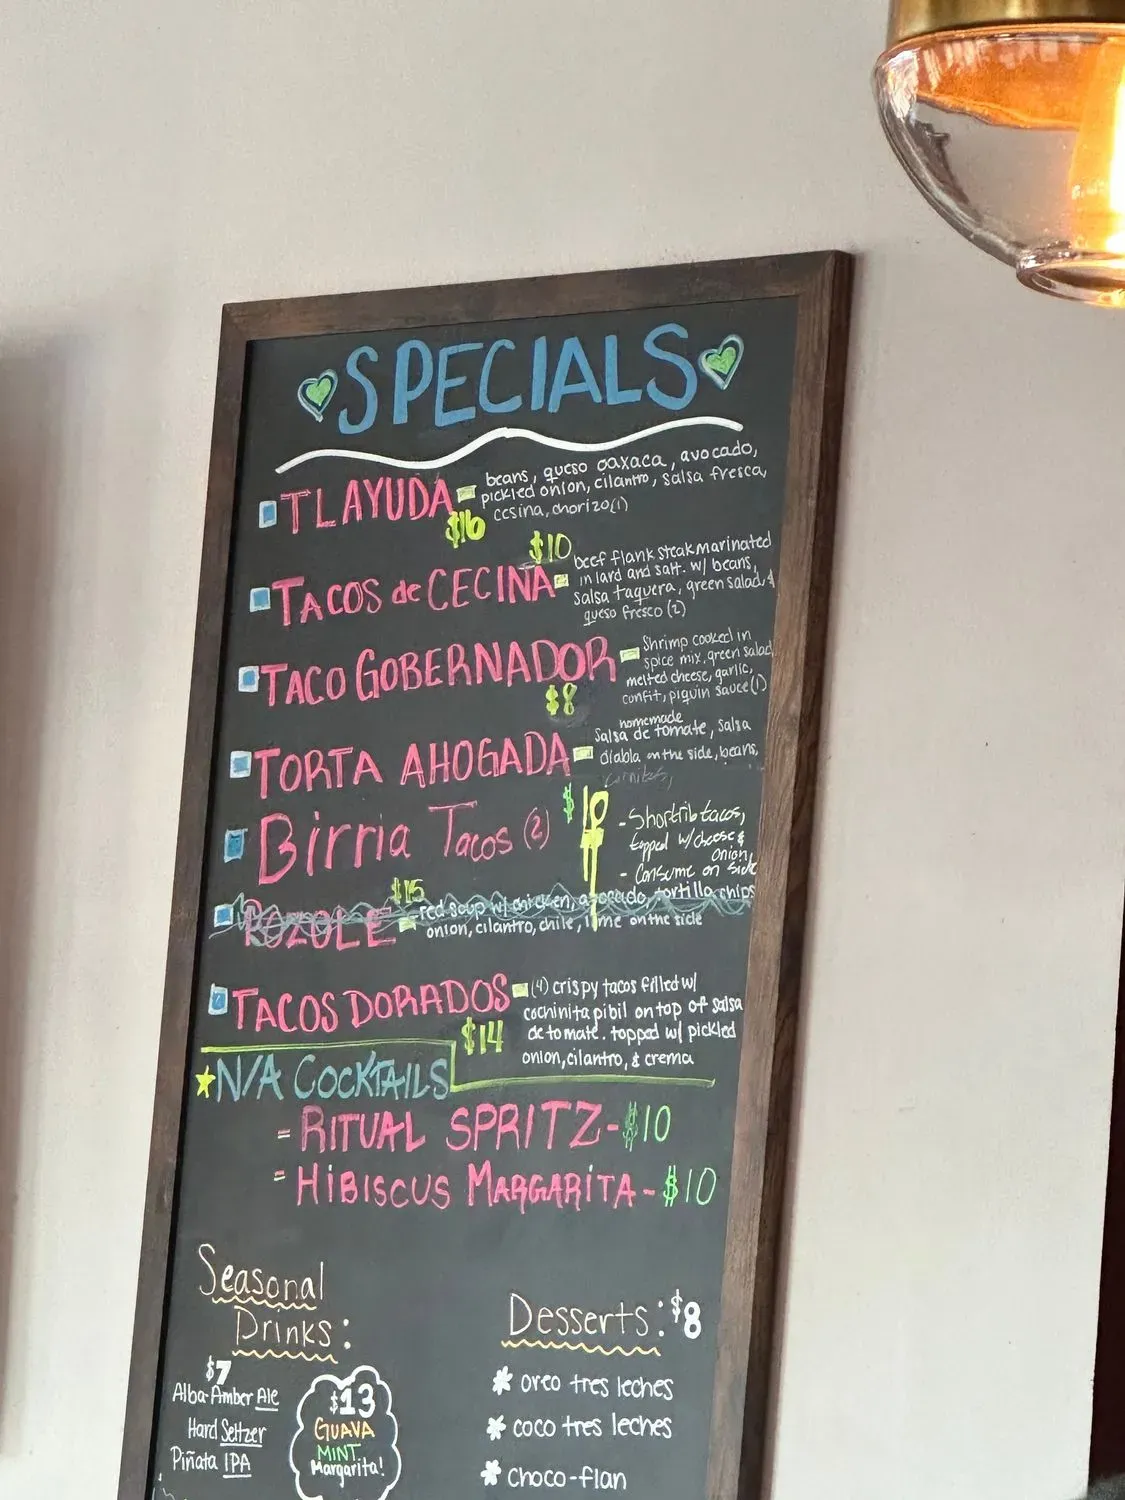 SPECIALS
TLAYUDA
beans, queso oaxaca, avocado,
pickled onion, cilantro, salsa fresca,
cesina, chorizo (1)
$16
$10
TACOS de CECINA
beef flank steak marinated
in lard and salt. w/ beans,
salsa taquera, green salad, &
queso fresco (2)
TACO GOBERNADOR
Shrimp cooked in
spice mix, green salad,
melted cheese, garlic,
confit, piquin sauce (1)
$8
TORTA AHOGADA
homemade
Salsa de tomate, salsa
diabla on the side, beans,
$10
Birria Tacos (2)
- Shortrib tacos,
topped w/ cheese &
onion,
- Consume on side
$15
POZOLE
red soup w/ chicken, avocado, tortilla chips
onion, cilantro, chile, lime on the side
TACOS DORADOS
(4) crispy tacos filled w/
cochinita pibil on top of salsa
de tomate. topped w/ pickled
onion, cilantro, & crema
$14
N/A COCKTAILS
= RITUAL SPRITZ - $10
= HIBISCUS MARGARITA - $10
Seasonal
Drinks:
$7
Alba-Amber Ale
Hard Seltzer
Piñata IPA
$13
GUAVA
MINT
Margarita!
Desserts: $8
oreo tres leches
coco tres leches
choco-flan